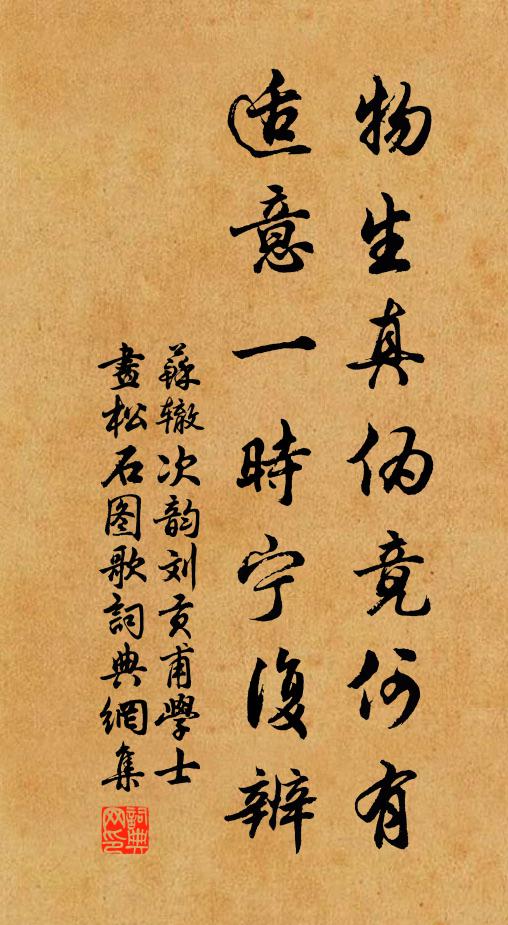 物生真伪竟何有
适意一時宁復辨
蘇辙次韵刘贡甫學士
畫松石图歌詞典網集
詞典
网印